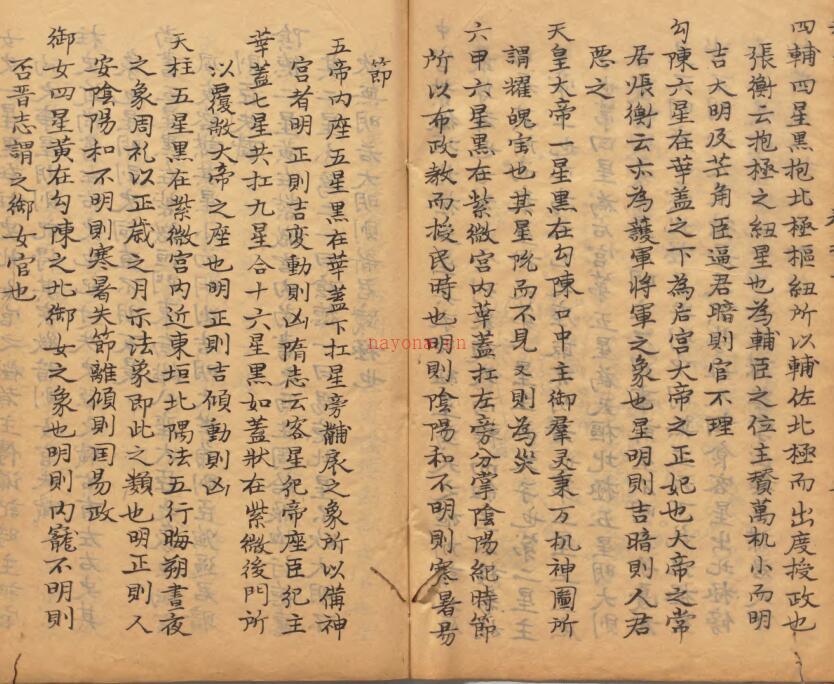 四輔四星黑抱北極樞紐所以輔佐北極而出度授政也
張衡云抱極之紐星也為輔臣之位主贊萬机小而明
吉大明及芒角臣逼君暗則官不理
勾陳六星在華盖之下為后宫大帝之正妃也大帝之常
居張衡云亦為護軍將軍之象也星明則吉暗則人君
惡之
天皇大帝一星黑在勾陳口中主御羣灵秉万机神圖所
謂耀魄宝也其星隐而不見見則為災
六甲六星黑在紫微宫内華盖扛左旁分掌陰陽紀時節
所以布政教而授民時也明則陰陽和不明則寒暑易
節
五帝内座五星黑在華盖下扛星旁黼扆之象所以備神
宫者明正則吉变動則凶隋志云客星犯帝座臣犯主
華蓋七星共扛九星合十六星黑如蓋狀在紫微後門所
以覆敝大帝之座也明正則吉傾動則凶
天柱五星黑在紫微宫内近東垣北隅法五行晦朔晝夜
之象周礼以正歲之月示法象即此之類也明正則人
安陰陽和不明則寒暑失節離傾則国易政
御女四星黄在勾陳之北御女之象也明則内寵不明則
否晋志謂之御女官也
nayona.cn